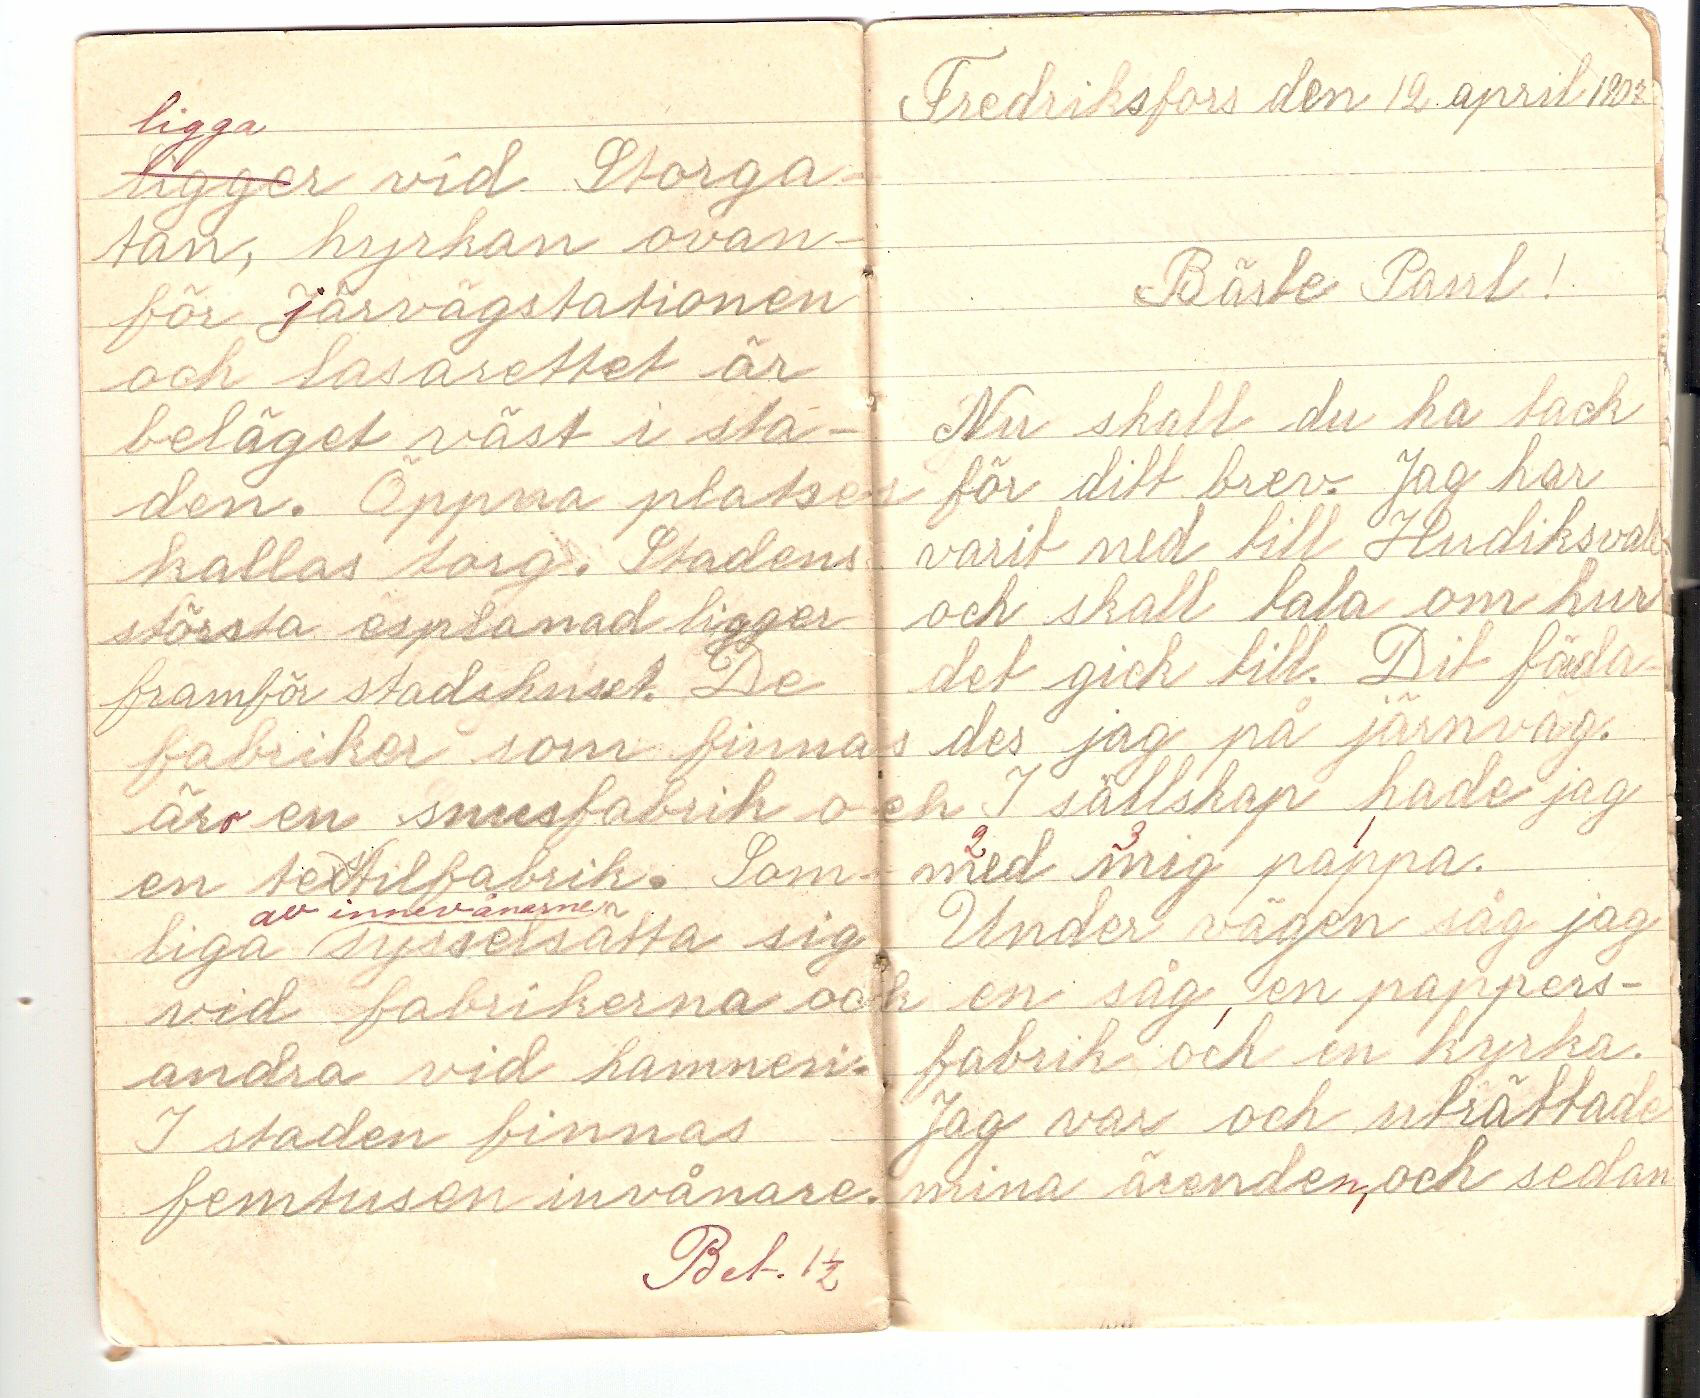 ligga
ligger vid Storga-
tan, kyrkan ovan-
för järvägstationen
och lasarettet är
beläget väst i sta-
den. Öppna platser
kallas torg. Stadens
största esplanad ligger
framför stadshuset. De
fabriker som finnas
äro en snusfabrik och
en textilfabrik. Som-
av innevånarne
liga sysselsatta sig
vid fabrikerna och
andra vid hamnen.
I staden finnas
femtusen invånare.
Bet. 1½
Fredriksfors den 12 april
Bäste Paul!
Nu skall du ha tack
för ditt brev. Jag har
varit ned till Hudiksvall
och skall tala om hur
det gick till. Dit färda-
des jag på järnväg.
I sällskap hade jag
2 3 1
med mig pappa.
Under vägen såg jag
en såg, en pappers-
fabrik och en kyrka.
Jag var och uträttade
mina ärenden, och sedan